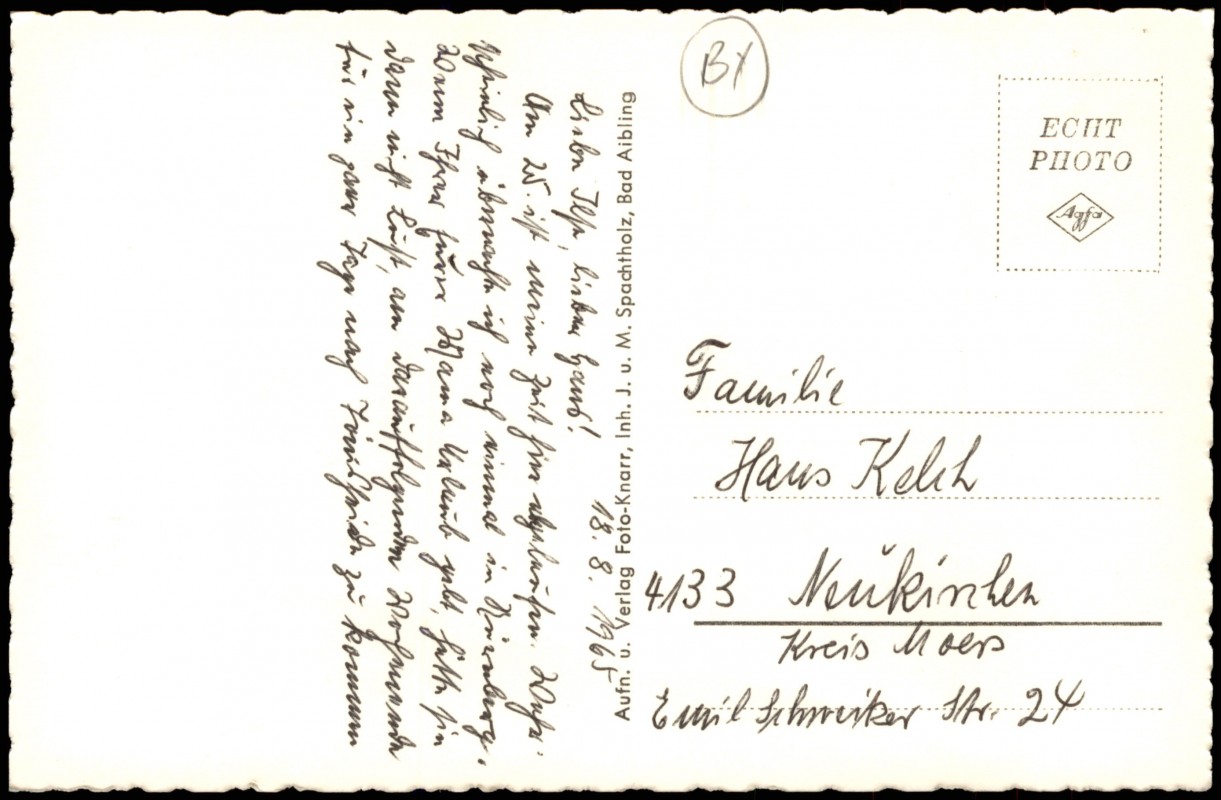 18. 8. 1965
Liebe Ilse, lieber Hans!
Am 25. ist meine Zeit hier abgelaufen. Wahr-
scheinlich übernachte ich noch einmal in Nürnberg.
Wenn Ihr Eurer Mama Urlaub gebt, hätte sie
dann nicht Lust, am darauffolgenden Wochenende
für ein paar Tage nach zu kommen
Aufn. u. Verlag Foto-Knarr, Inh. J. u. M. Spachtholz, Bad Aibling
BY
ECHT
PHOTO
Agfa
Familie
Hans Kelch
4133 Neukirchen
Kreis Moers
Emil Schweiker Str. 24